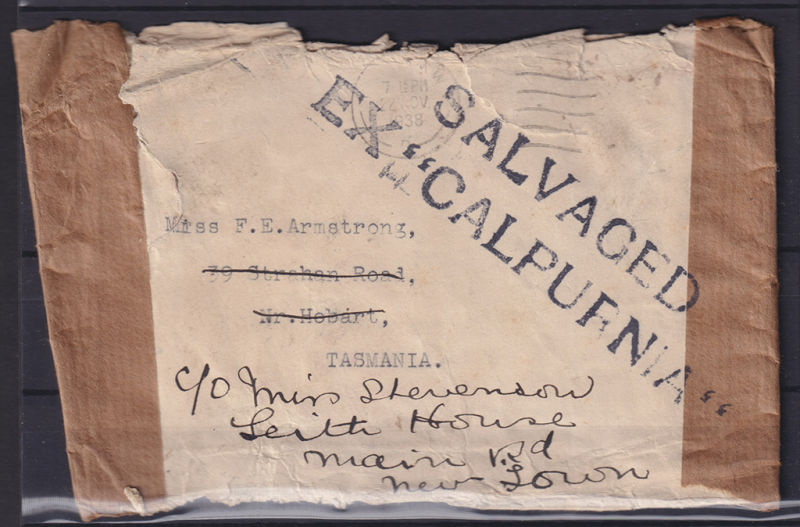 7 15PM
22 NOV
1938
SALVAGED
EX "CALPURNIA"
Miss F.E.Armstrong,
39 Strahan Road,
Nr.Hobart,
TASMANIA.
c/o Miss Stevenson
Leith House
Main Rd
New Town